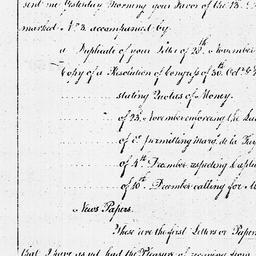 sent me Yesterday Morning your Favor of the 13.
marked N.º 3. accompanied by
a Duplicate of your Letter of 28th November
Copy of a Resolution of Congress of 30th Octr.
stating Quotas of Money.
of 23. November enforcing the
of 1st permitting
of 4th December respecting
of 16th December calling for
News Papers.
These are the first Letters or Papers
that I have as yet had the Pleasure of receiving from